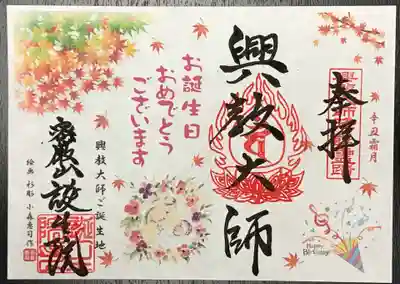 奉拝
辛丑霜月
興教大師
お誕生日
おめでとう
ございます
興教大師ご誕生地
密厳山誕生院
Happy Birthday